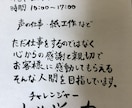 声の仕事・紙工作など
ただ仕事をするのではなく
心からの感謝と親切で
お客様に感動してもらえる
そんな人間を目指しています。
チャレンジャー